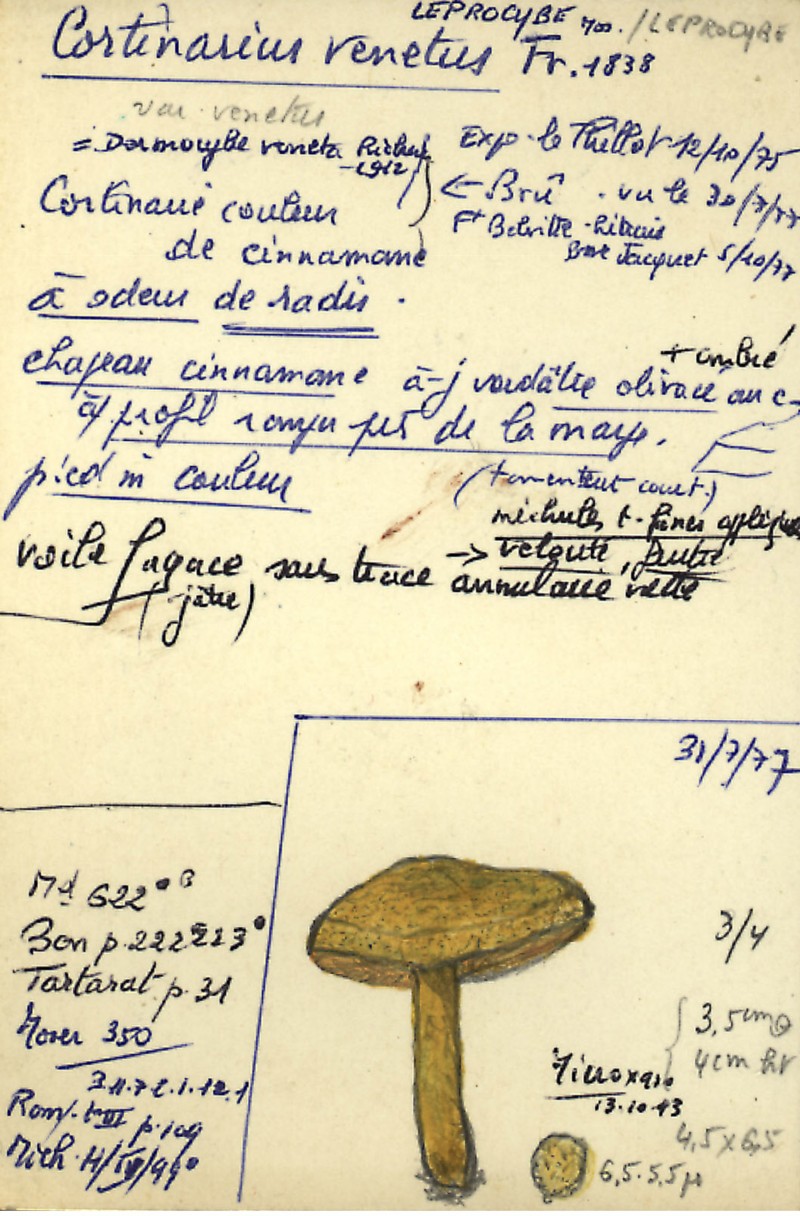 LEPROCYBE / LEPROCYBE
Cortinarius venetus Fr. 1838
var. venetus
= Dermocybe veneta
-1912
Exp. le Thillot 12/10/75
Cortinaire couleur
← Brû . vu le 30/7/77
de cinnamome
Jacquet 5/10/77
à odeur de radis.
+ ombré
chapeau cinnamome à-j verdâtre olivacé au c
à profil rompu près de la marge.
pied m̄ couleur
(tomenteux court.)
méchules t. fines
voile fugace sans trace → velouté, feutré
annulaire nette
(jâtre)
31/7/77
Md 622
Bon p. 222 223
Tartarat p. 31
Moser 350
3.11.7.2.1.12.1
Rom. t III p. 109
Mich. H/IV/99
3/4
3,5 cm
4 cm ht
13.10.93
4,5 x 6,5
6,5. 5,5 µ